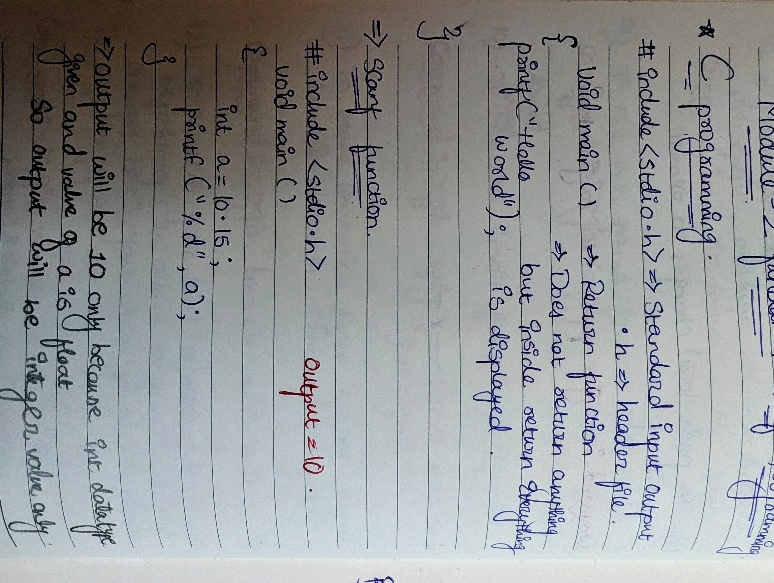 Module - 2
* C programming.
# include <stdio.h> => Standard input output
.h => header file.
void main () => Return function
{ => Does not return anything
printf("Hello but inside return everything
world"); is displayed.
}
=> Scanf function.
# include <stdio.h> output = 10.
void main ()
{
int a = 10.15;
printf ("%d", a);
}
=> output will be 10 only because int datatype
given and value of a is float
So output will be integer value only.